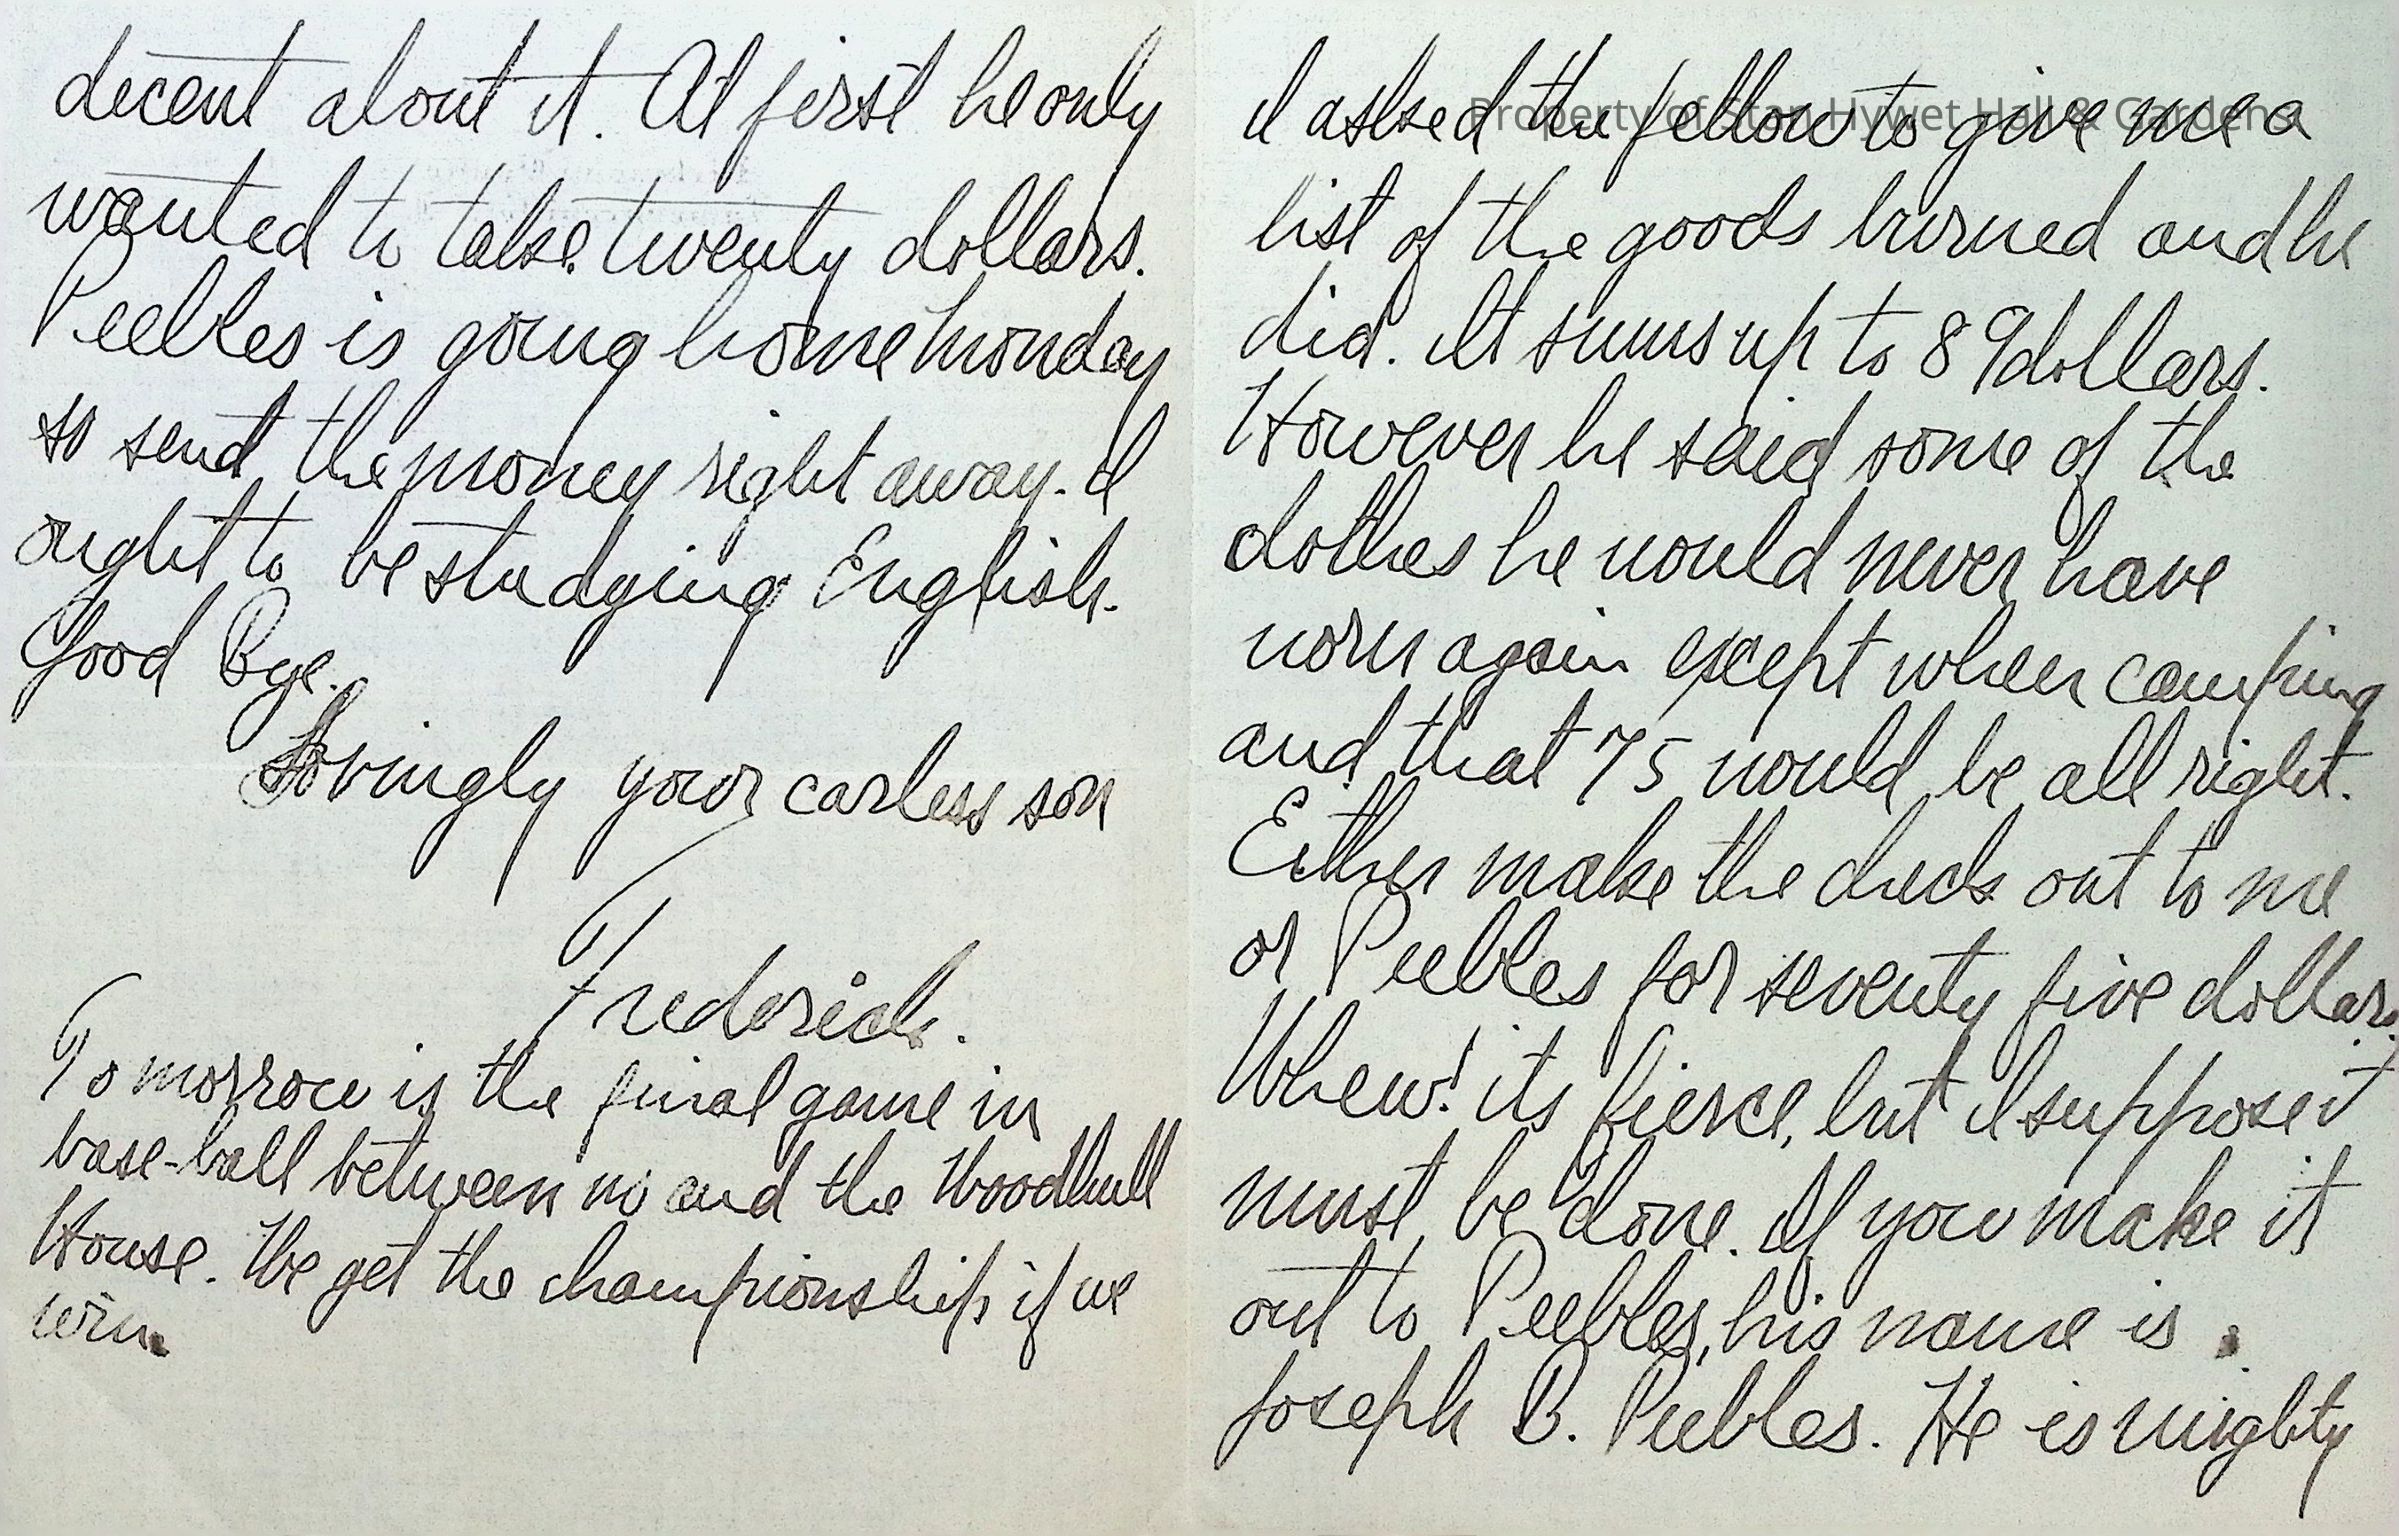 Property of Stan Hywet Hall & Gardens
I asked the fellow to give me a
list of the goods burned and he
did. It sums up to 89 dollars.
However he said some of the
clothes he would never have
worn again except when camping
and that 75 would be all right.
Either make the check out to me
or Peebles for seventy five dollars.
Whew! its fierce, but I suppose it
must be done. If you make it
out to Peebles, his name is
Joseph B. Peebles. He is mighty
decent about it. At first he only
wanted to take twenty dollars.
Peebles is going home Monday
so send the money right away. I
ought to be studying English.
Good Bye.
Lovingly your carless son
Frederick.
Tomorrow is the final game in
base-ball between us and the Woodhull
House. We get the championship if we
win.